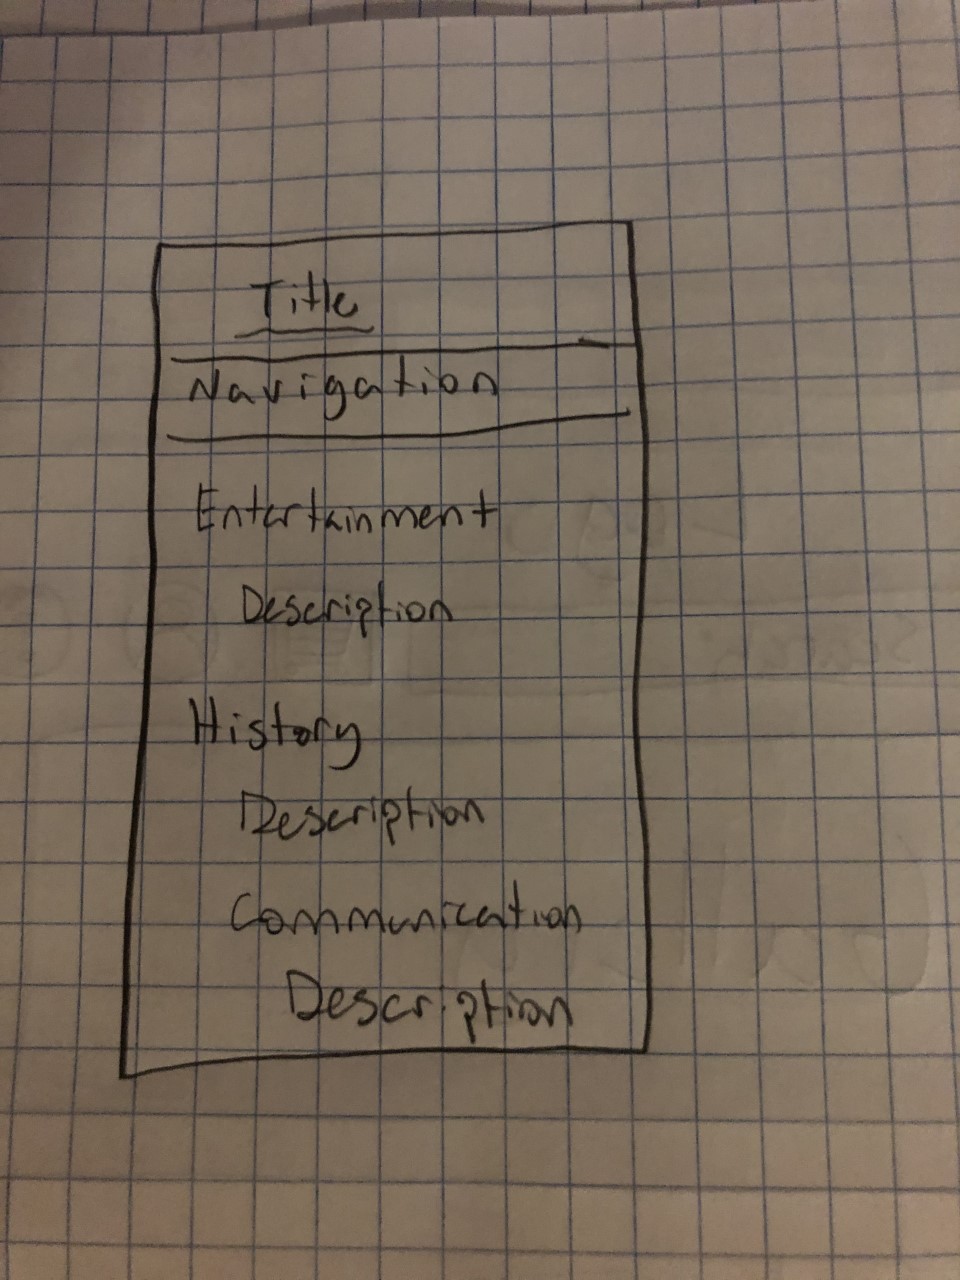 Title
Navigation
Entertainment
Description
History
Description
Communication
Description